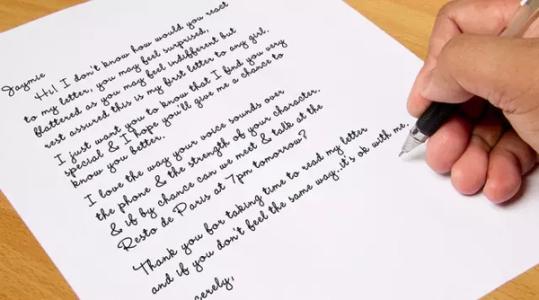 Jaymie
Hi! I don't know how would you react
to my letter, you may feel surprised,
flattered as you may feel indifferent but
rest assured this is my first letter to any girl.
I just want you to know that I find you very
special & I hope you'll give me a chance to
know you better.
I love the way your voice sounds over
the phone & the strength of your character.
& if by chance can we meet & talk at the
Resto de Paris at 7pm tomorrow?
Thank you for taking time to read my letter
and if you don't feel the same way..it's ok with me.
cerely,